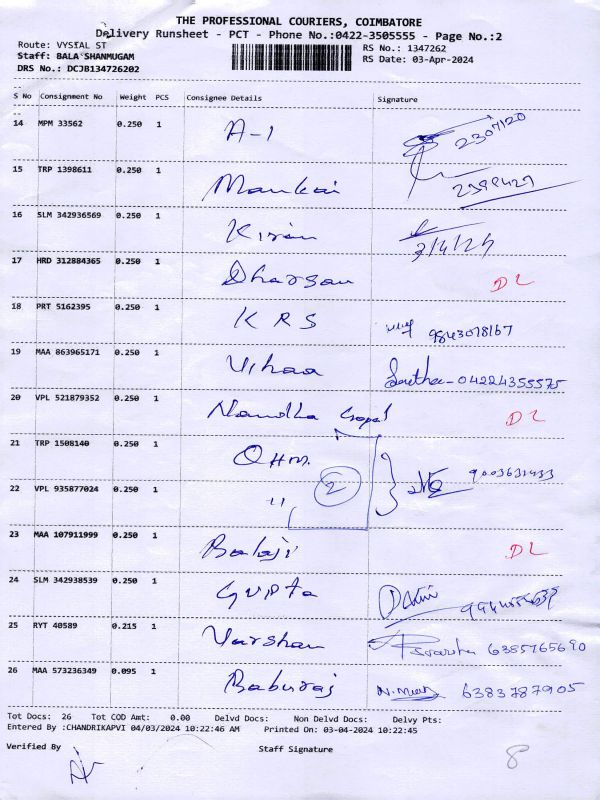 THE PROFESSIONAL COURIERS, COIMBATORE
Delivery Runsheet - PCT - Phone No.:0422-3505555 - Page No.:2
Route: VYSIAL ST RS No.: 1347262
Staff: BALA SHANMUGAM RS Date: 03-Apr-2024
DRS No.: DCJB134726202
S No Consignment No Weight PCS Consignee Details Signature
14 MPM 33562 0.250 1 A-1 2307120
15 TRP 1398611 0.250 1 Mankai 2399429
16 SLM 342936569 0.250 1 Kiran 3/4/24
17 HRD 312884365 0.250 1 Dharsan DL
18 PRT 5162395 0.250 1 KRS 9843018167
19 MAA 863965171 0.250 1 Vihaa 04224355575
20 VPL 521879352 0.250 1 Nandha Gopal DL
21 TRP 1508140 0.250 1 OHM. 9003631433
22 VPL 935877024 0.250 1 " 2
23 MAA 107911999 0.250 1 Balaji DL
24 SLM 342938539 0.250 1 Gupta
25 RYT 40589 0.215 1 Varshan 6385765690
26 MAA 573236349 0.095 1 Baburaj 6383787905
Tot Docs: 26 Tot COD Amt: 0.00 Delvd Docs: Non Delvd Docs: Delvy Pts:
Entered By :CHANDRIKAPVI 04/03/2024 10:22:46 AM Printed On: 03-04-2024 10:22:45
Verified By Staff Signature 8